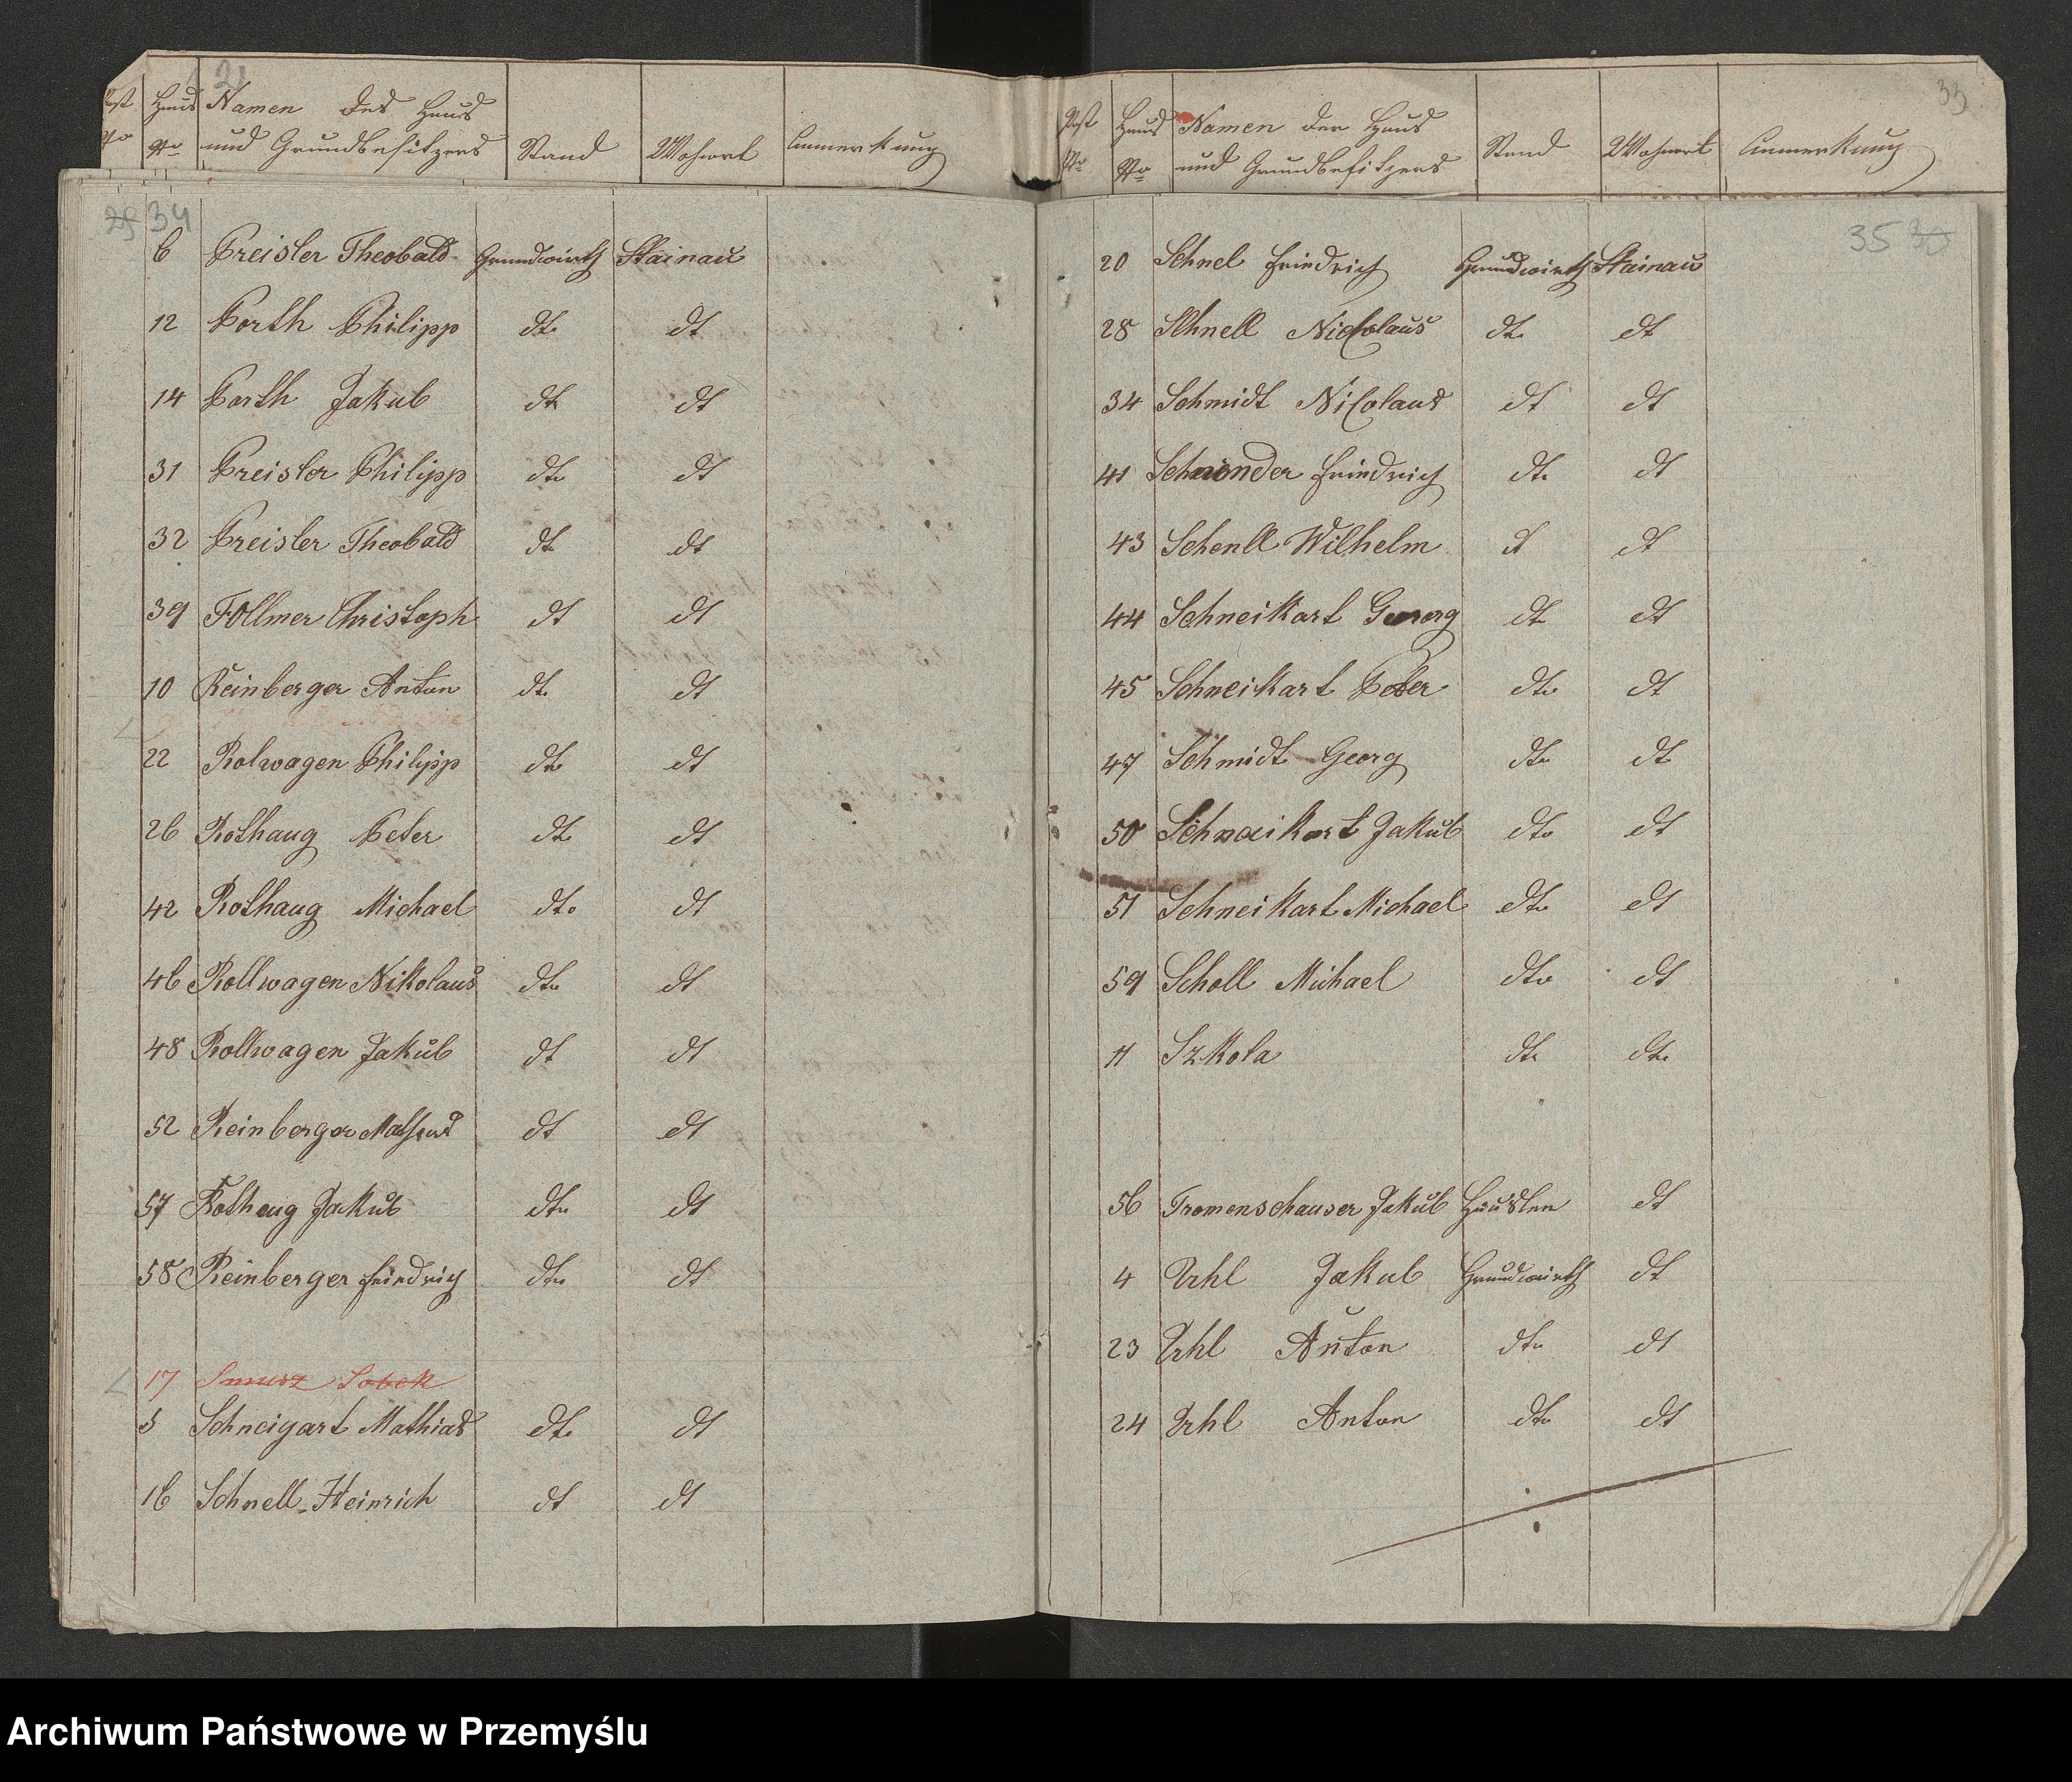 21
Post Haus Namen des Haus
Nro Nro und Grundbesitzers Stand Wohnort Anmerkung
29 34
6 Preisler Theobald Grundwirth Stainau
12 Porth Philipp dto dt
14 Porth Jakub dt dt
31 Preisler Philipp dto dt
32 Preisler Theobald dt dt
39 Follmer Christoph dt dt
10 Reinberger Anton dt dt
22 Rolwagen Philipp dto dt
26 Rothaug Peter dto dt
42 Rothaug Michael dto dt
46 Rollwagen Nikolaus dto dt
48 Rollwagen Jakub dt dt
52 Reinberger Mathias dt dt
57 Rothaug Jakub dto dt
58 Reinberger Friedrich dto dt
17 Smusz Sobek
5 Schneigart Mathias dto dt
16 Schnell Heinrich dt dt
33
Post Haus Namen der Haus
Nro Nro und Grundbesitzers Stand Wohnort Anmerkung
35 30
20 Schnel Friedrich Grundwirth Stainau
28 Schnell Nicolaus dto dt
34 Schmidt Nicolaus dt dt
41 Schneider Friedrich dto dt
43 Schenll Wilhelm dt dt
44 Schneikart Georg dt dt
45 Schneikart Peter dto dt
47 Schmidt Georg dto dt
50 Schnaikart Jakub dto dt
51 Schneikart Michael dto dt
59 Scholl Michael dto dt
11 Szkola dto dto
56 Tromenschauser Jakub Häusler dt
4 Uhl Jakub Grundwirth dt
23 Uhl Anton dto dt
24 Uhl Anton dto dt
Archiwum Państwowe w Przemyślu